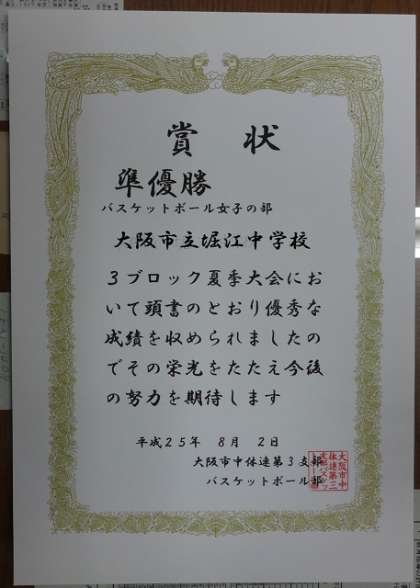 賞状
準優勝
バスケットボール女子の部
大阪市立堀江中学校
3ブロック夏季大会にお
いて頭書のとおり優秀な
成績を収められましたの
でその栄光をたたえ今後
の努力を期待します
平成25年 8月 2日
大阪市中体連第3支部
バスケットボール部
大阪市中
体連第三